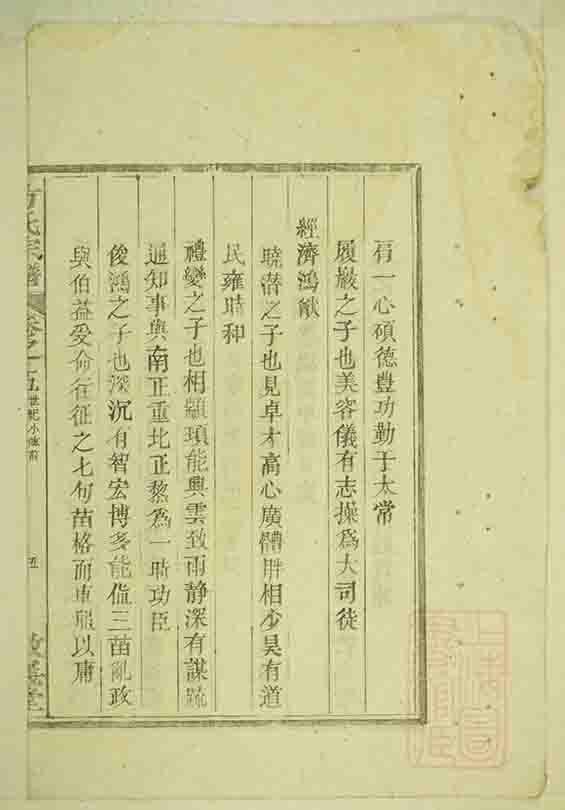 有一心碩德豊功勤于太常
履嚴之子也美容儀有志操爲大司徒
經濟鴻猷
曉潛之子也見卓才高心廣體胖相少昊有道
民雍時和
禮變之子也相顓頊能興雲致雨靜深有謀疏
通知事與南正重北正黎爲一時功臣
俊鴻之子也深沉有智宏博多能值三苗亂政
與伯益受命往征之七旬苗格而車服以庸
方氏宗譜
卷之十五
世紀小傳前
五
敦善堂